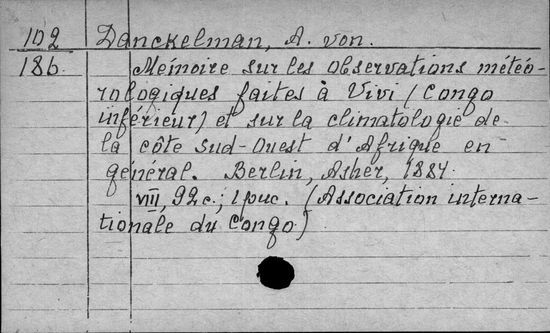 102 Danckelman, A. von.
186. Mémoire sur les observations météo-
rologiques faites à Vivi (Congo
inférieur) et sur la climatologie de
la côte sud-ouest d'Afrique en
général. Berlin, Asher, 1884.
VIII, 92 с.; 1 рис. (Association interna-
tionale du Congo)